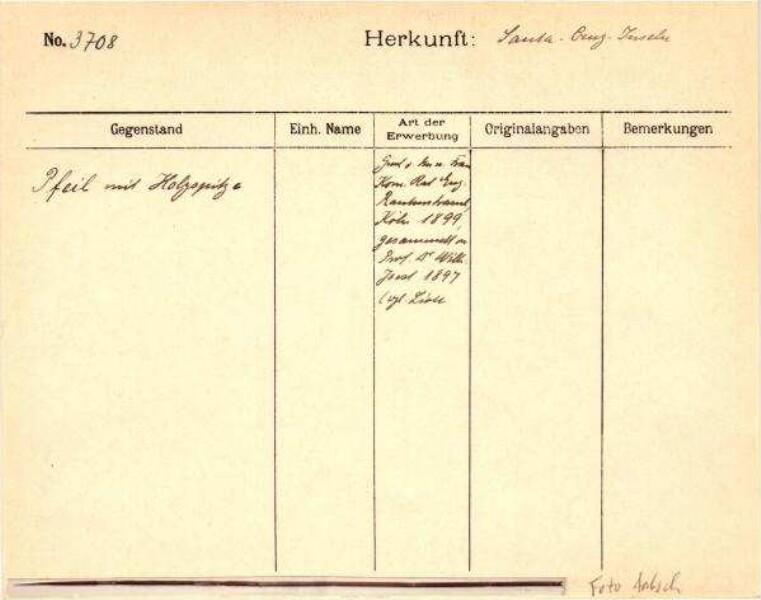 No. 3708 Herkunft: Santa-Cruz-Inseln
Gegenstand Einh. Name Art der Erwerbung Originalangaben Bemerkungen
Pfeil mit Holzspitze
Frau
Kom. Rat Eug.
Rautenstrauch,
Köln 1899,
gesammelt v.
Prof. Dr Wilh.
Joest 1897
(vgl. Liste
Foto